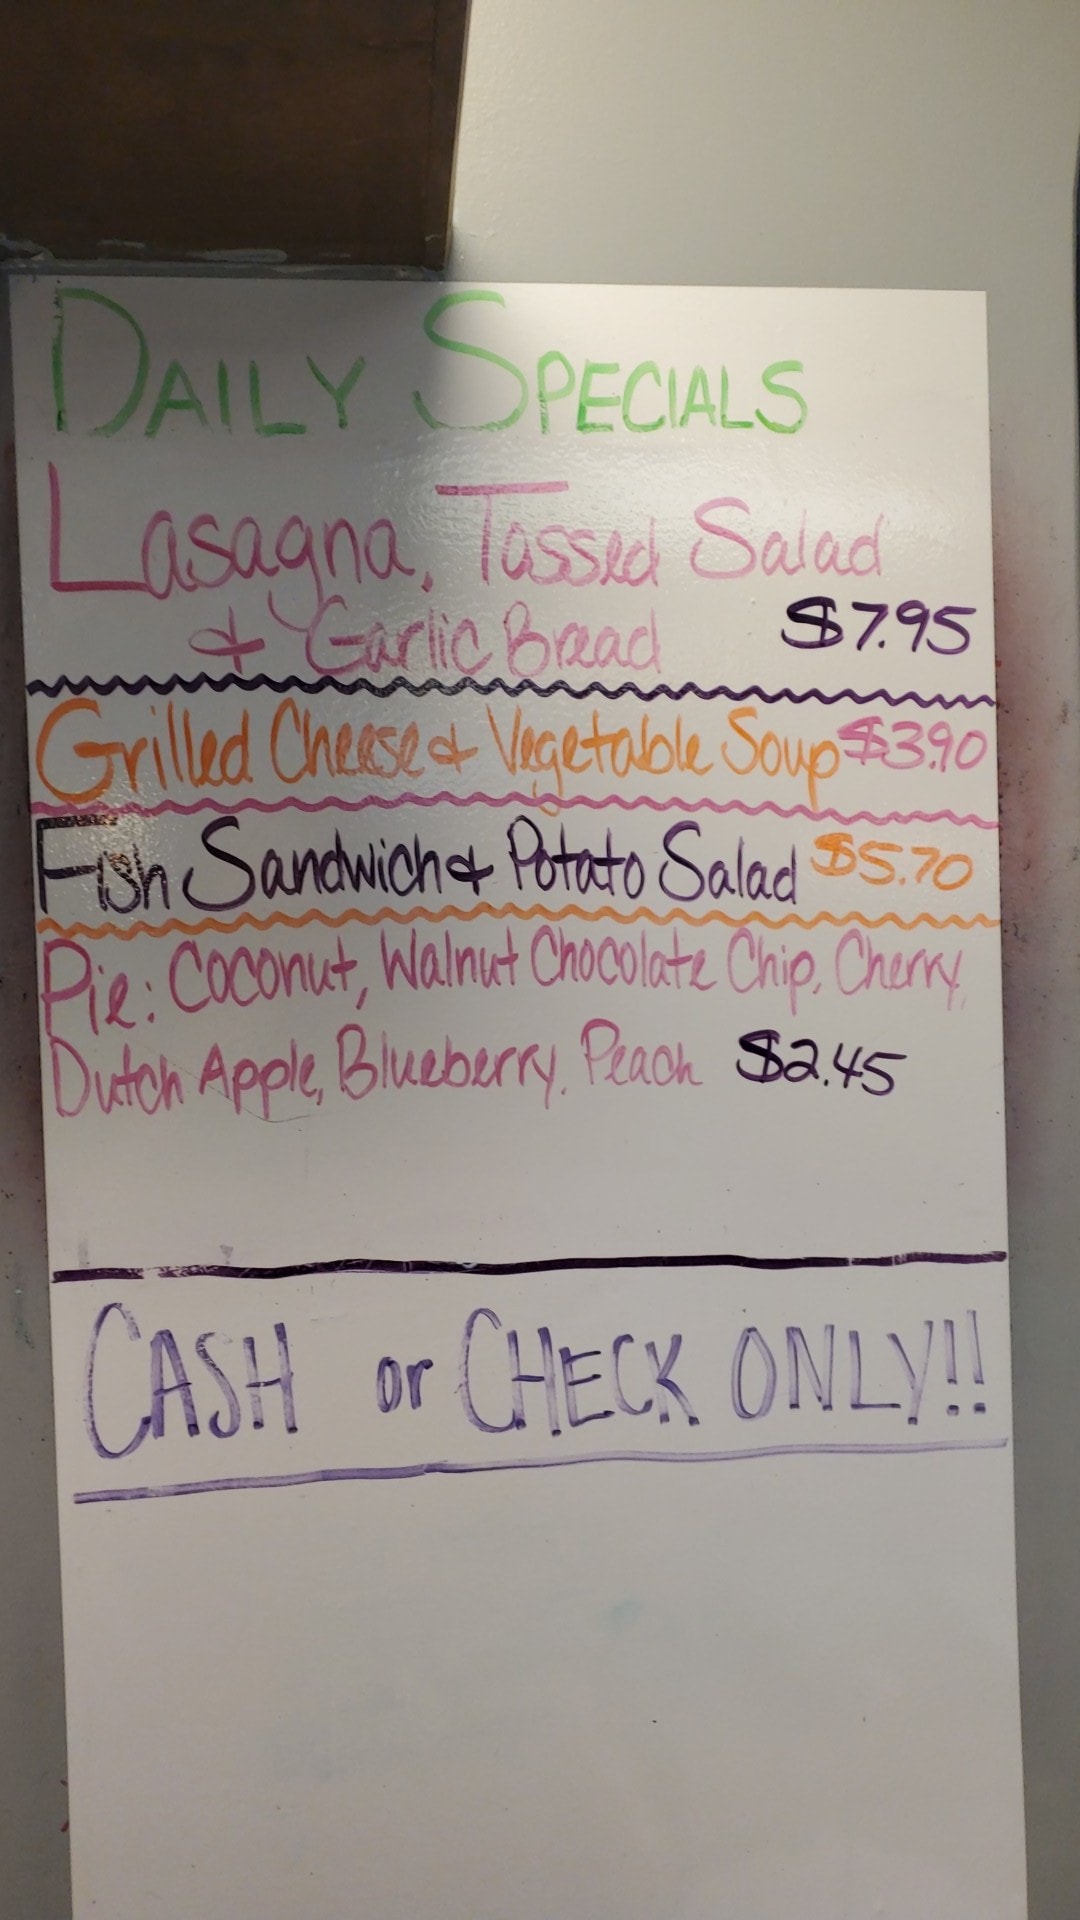 DAILY SPECIALS
Lasagna, Tossed Salad
& Garlic Bread $7.95
Grilled Cheese & Vegetable Soup $3.90
Fish Sandwich & Potato Salad $5.70
Pie: Coconut, Walnut Chocolate Chip, Cherry,
Dutch Apple, Blueberry, Peach $2.45
CASH or CHECK ONLY!!